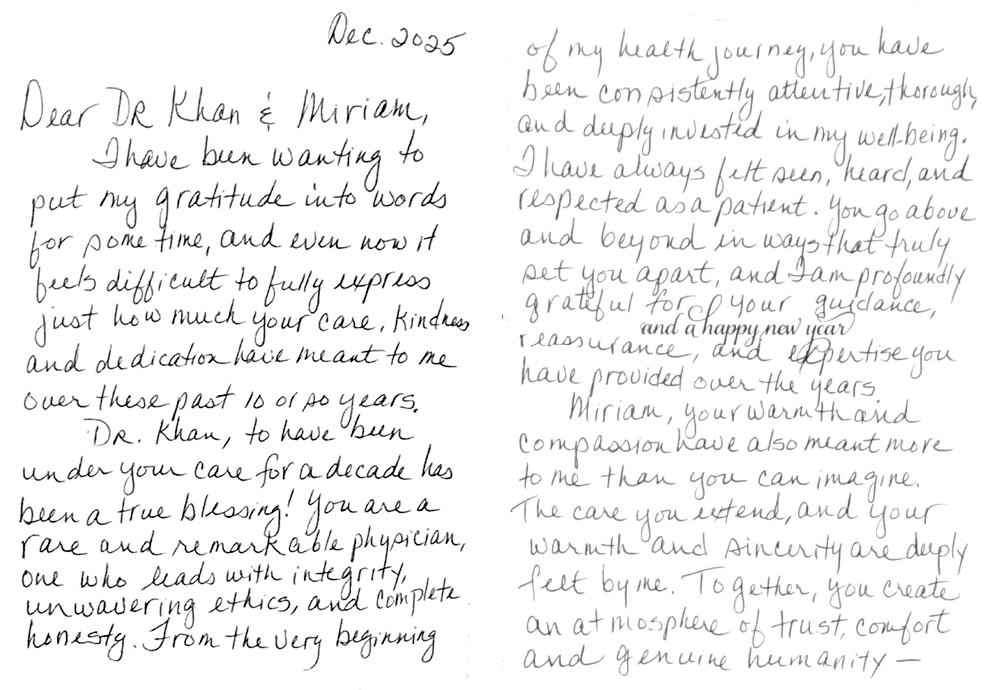 Dec. 2025
Dear DR Khan & Miriam,
I have been wanting to
put my gratitude into words
for some time, and even now it
feels difficult to fully express
just how much your care, kindness
and dedication have meant to me
over these past 10 or so years.
DR. Khan, to have been
under your care for a decade has
been a true blessing! You are a
rare and remarkable physician,
one who leads with integrity,
unwavering ethics, and complete
honesty. From the very beginning
of my health journey, you have
been consistently attentive, thorough,
and deeply invested in my well-being.
I have always felt seen, heard, and
respected as a patient. You go above
and beyond in ways that truly
set you apart, and I am profoundly
grateful for your guidance,
and a happy new year
reassurance, and expertise you
have provided over the years
Miriam, your warmth and
compassion have also meant more
to me than you can imagine.
The care you extend, and your
warmth and sincerity are deeply
felt by me. Together, you create
an atmosphere of trust, comfort
and genuine humanity —